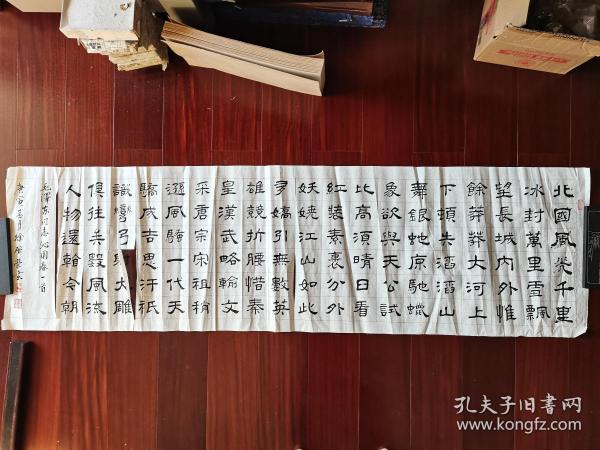 北國風光千里
冰封萬里雪飄
望長城內外惟
餘莽莽大河上
下頓失滔滔山
舞銀蛇原馳蠟
象欲與天公試
比高須晴日看
紅裝素裹分外
妖嬈江山如此
多嬌引無數英
雄競折腰惜秦
皇漢武略輸文
采唐宗宋祖稍
遜風騷一代天
驕成吉思汗祇
識彎弓射大雕
俱往矣數風流
人物還看今朝
毛澤东同志沁園春一首
孔夫子旧书网
www.kongfz.com